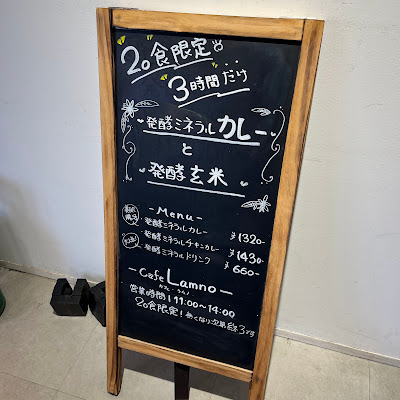 20食限定
3時間だけ
発酵ミネラルカレー
と
発酵玄米
-Menu-
発酵ミネラルカレー ¥1320-
発酵ミネラルチキンカレー ¥1430-
発酵ミネラルドリンク ¥660-
-Cafe Lamno-
営業時間 11:00〜14:00
20食限定!無くなり次第終了